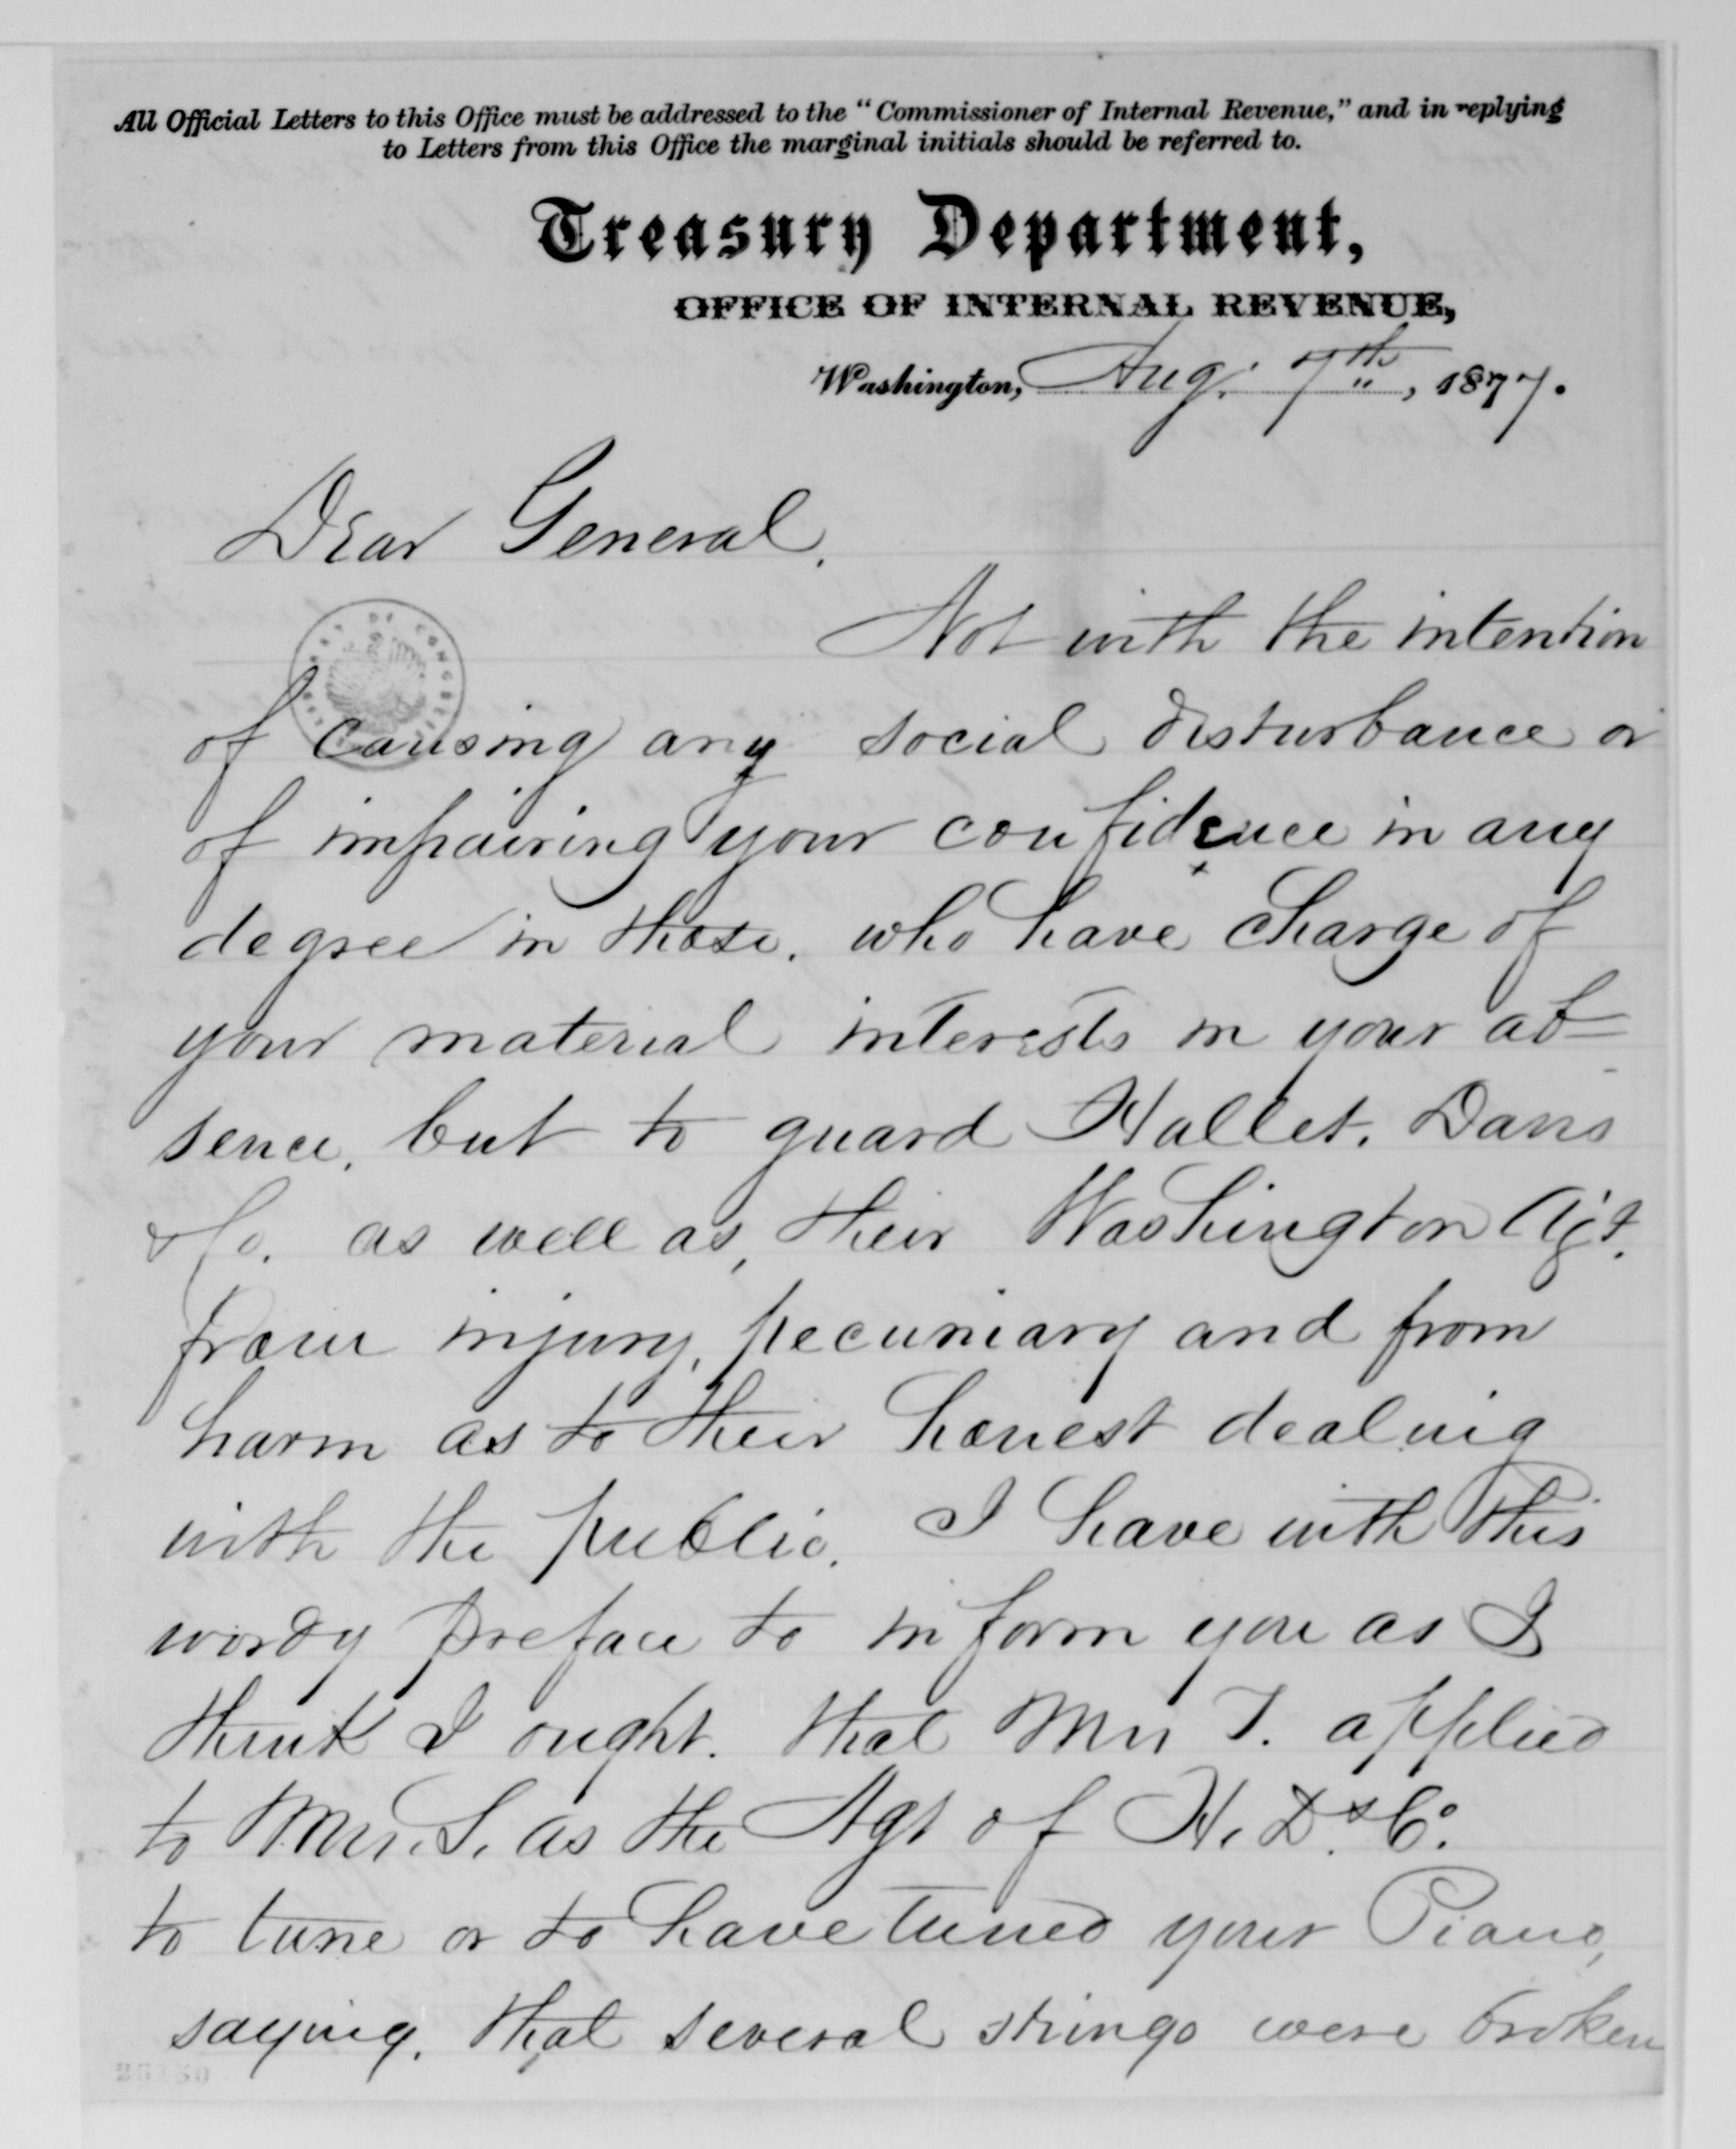 All Official Letters to this Office must be addressed to the "Commissioner of Internal Revenue," and in replying
to Letters from this Office the marginal initials should be referred to.
Treasury Department,
OFFICE OF INTERNAL REVENUE,
Washington, Aug. 7th, 1877.
Dear General,
Not with the intention
of causing any social disturbance or
of impairing your confidence in any
degree in those, who have charge of
your material interests in your ab-
sence, but to guard Hallet, Davis
& Co. as well as, their Washington Agt.
from injury, pecuniary and from
harm as to their honest dealing
with the public. I have with this
wordy preface to inform you as I
think I ought. that Mrs T. applied
to Mrs. S. as the Agt of H. D. & Co.
to tune or to have tuned your Piano,
saying, that several strings were broken